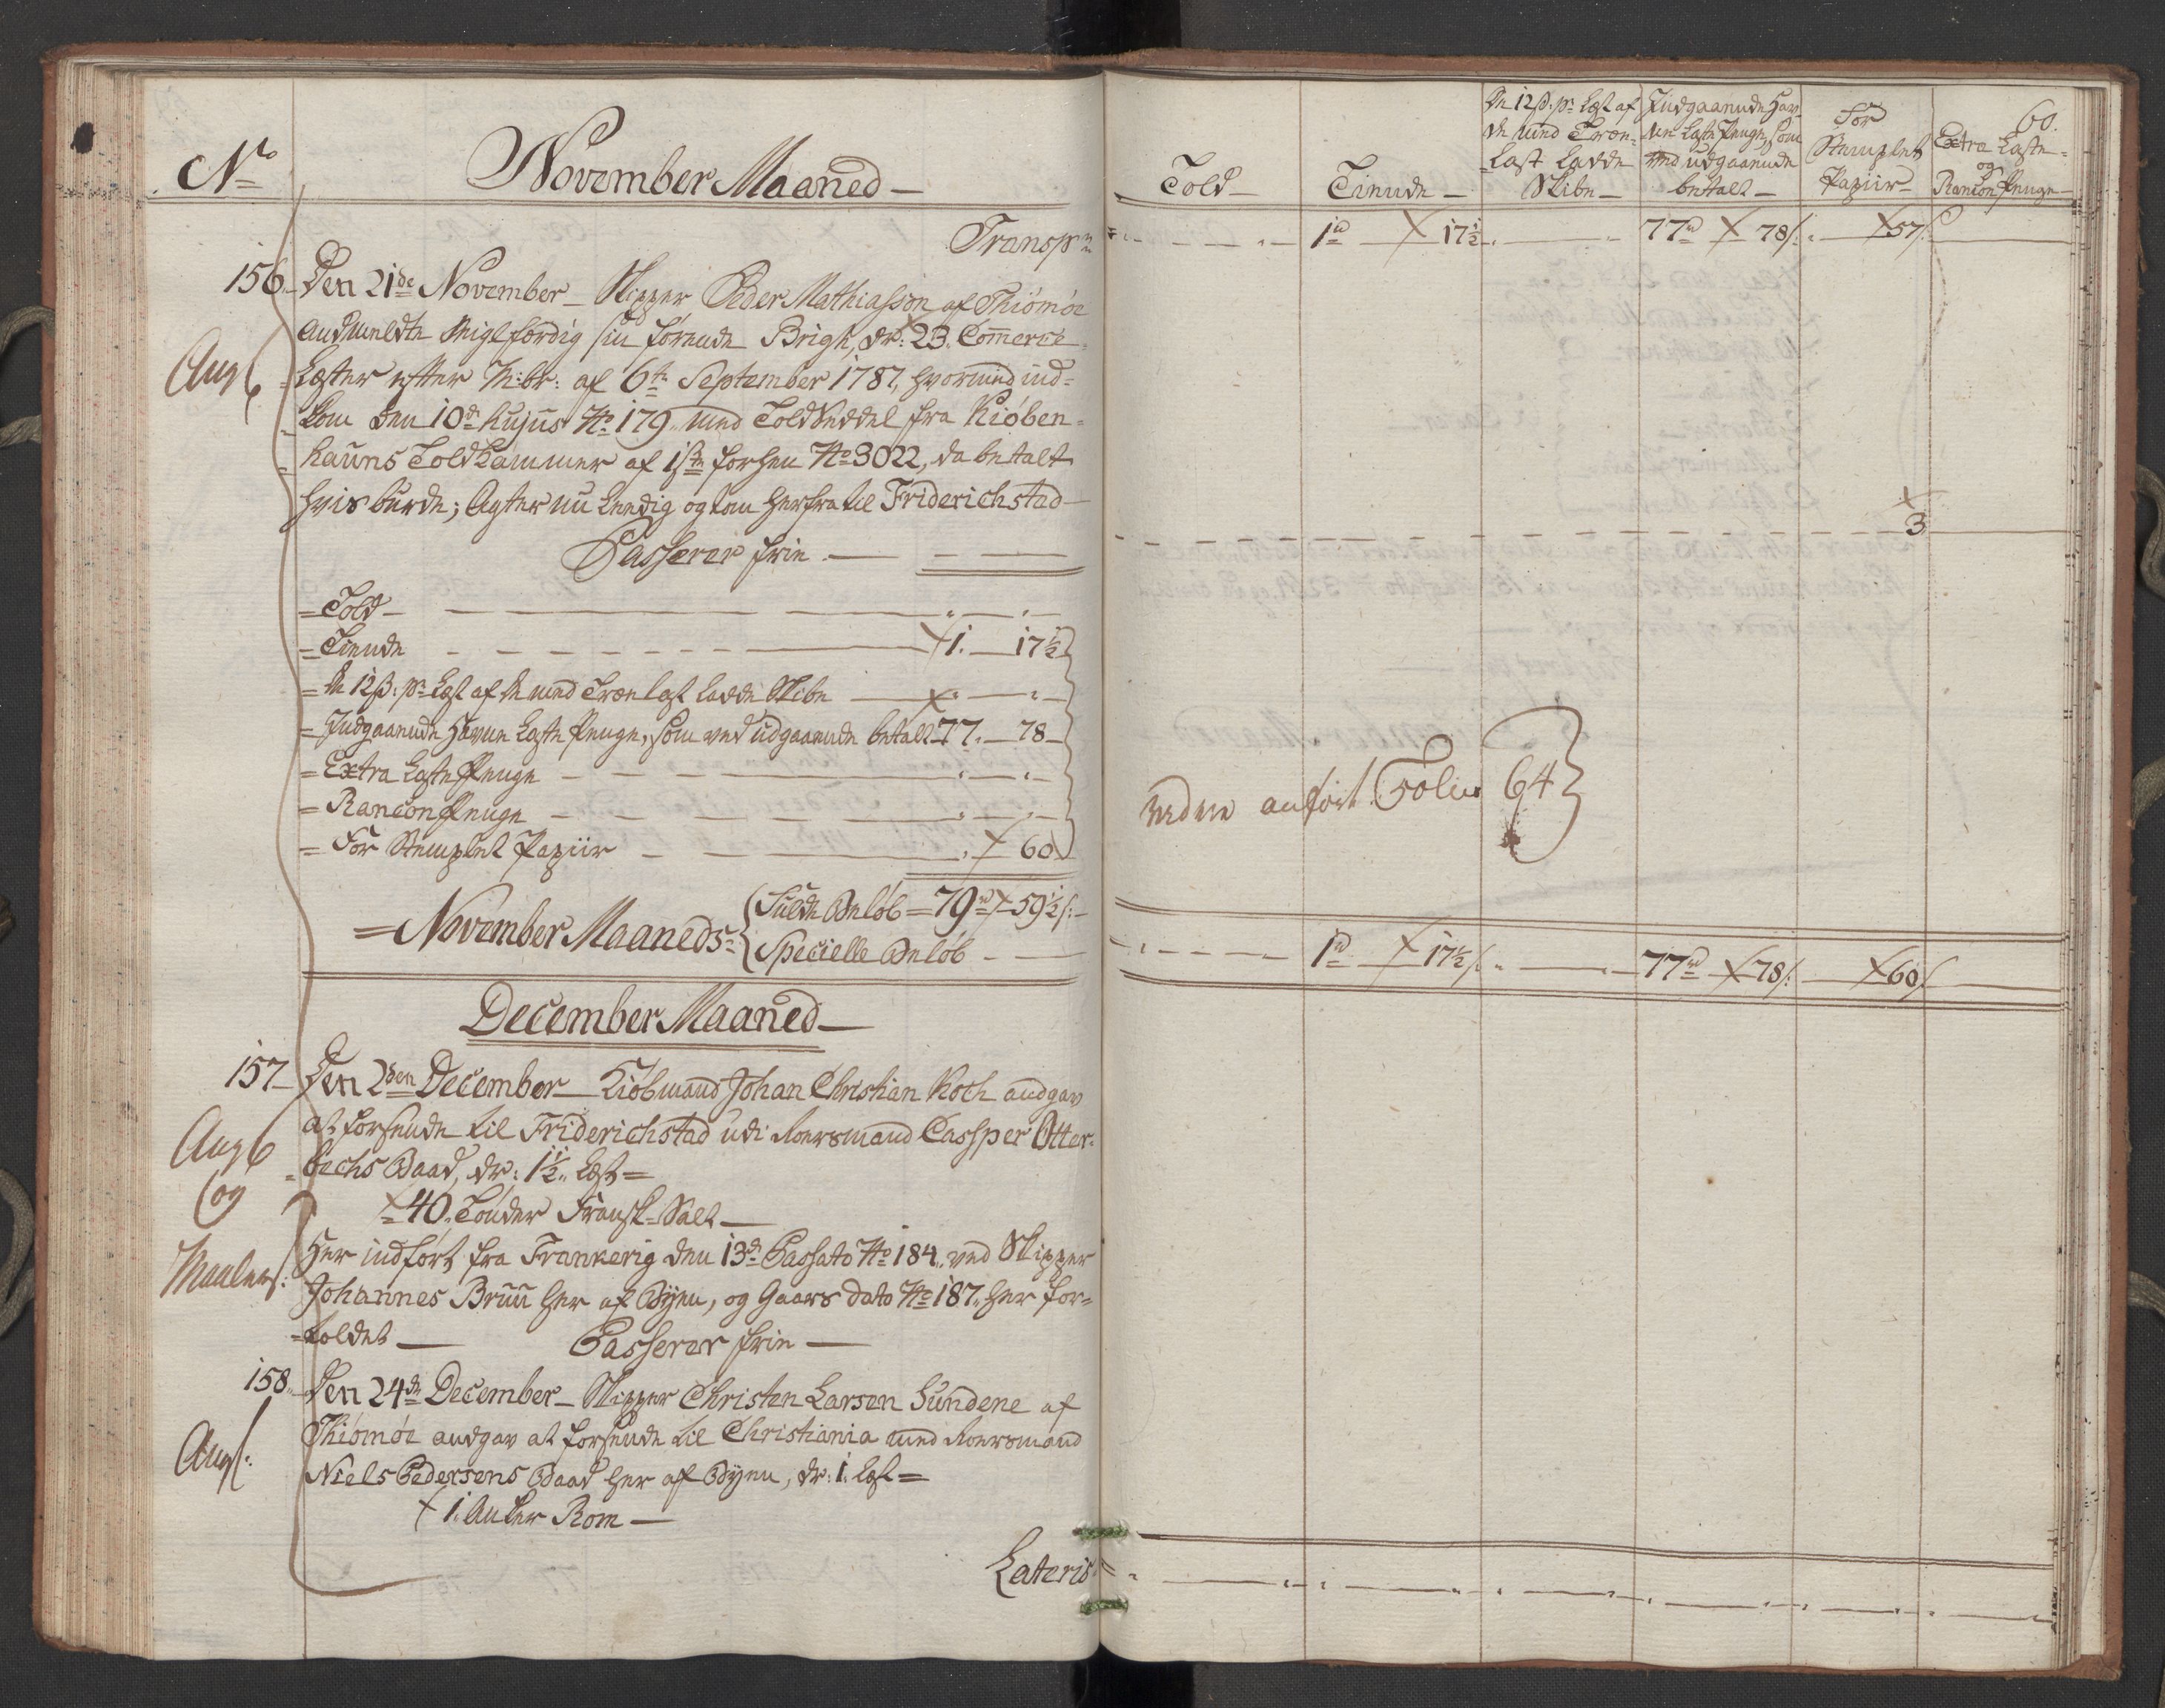 No
November Maaned
Transp:
156. Den 21de November Skipper Peder Mathiasson af Thiömöe
andmeldte Seiglferdig sin förende Brigh, dr: 23. Commerce
Aug
Læster efter M:br: af 6te September 1787, hvormed ind=
kom den 10de hujus No 179 med Toldseddel fra Kiöben=
hauns Toldkammer af 1ste forhen No 3022, da betalt
hvis burde; Agter nu leedig og tom herfra til Friderichstad
Passerer frie
Told
Tiende 1. 17½
De 12ß: pr Læst af de med Træelast ladde Skibe
Indgaaende Havne Læste Penge, som ved udgaaende betalt 77. 78
Extra Læste Penge
Rancon Penge
For Stemplet Papiir 60
November Maaneds
Fulde Beløb 79rd 59½ s:
Specielle Beløb
December Maaned
157 Den 2den December Kiöbmand Johan Christian Koch andgav
at forsende til Friderichstad udi Roersmand Cassper Otter=
Aug
bechs Baad, dr: 1½ Læst
og
40. Tönder Fransk Salt
Maalers:
Her indfört fra Frankerig den 13de Passato No 184 ved Skipper
Johannes Bruun her af Byen, og Gaars dato No 187 her for=
toldet Passerer frie
158. Den 24de December Skipper Christen Larsen Sundene af
Thiömöe andgav at forsende til Christiania med Roersmand
Aug:
Niels Pedersens Baad her af Byen, dr: 1. Læst
1. Anker Rom
Lateris
60.
Told
Tiende
De 12ß: pr Læst af
de med Træe-
last ladde
Skibe
Indgaaende Hav
ne Læste Penge, som
ved udgaaende
betalt
For
Stemplet
Papiir
Extra Læste
og
Rancon Penge
1rd 17½ 77rd 78 s: 57 s:
3
anfört Folio 64
1rd 17½ s: 77rd 78 s: 60 s: